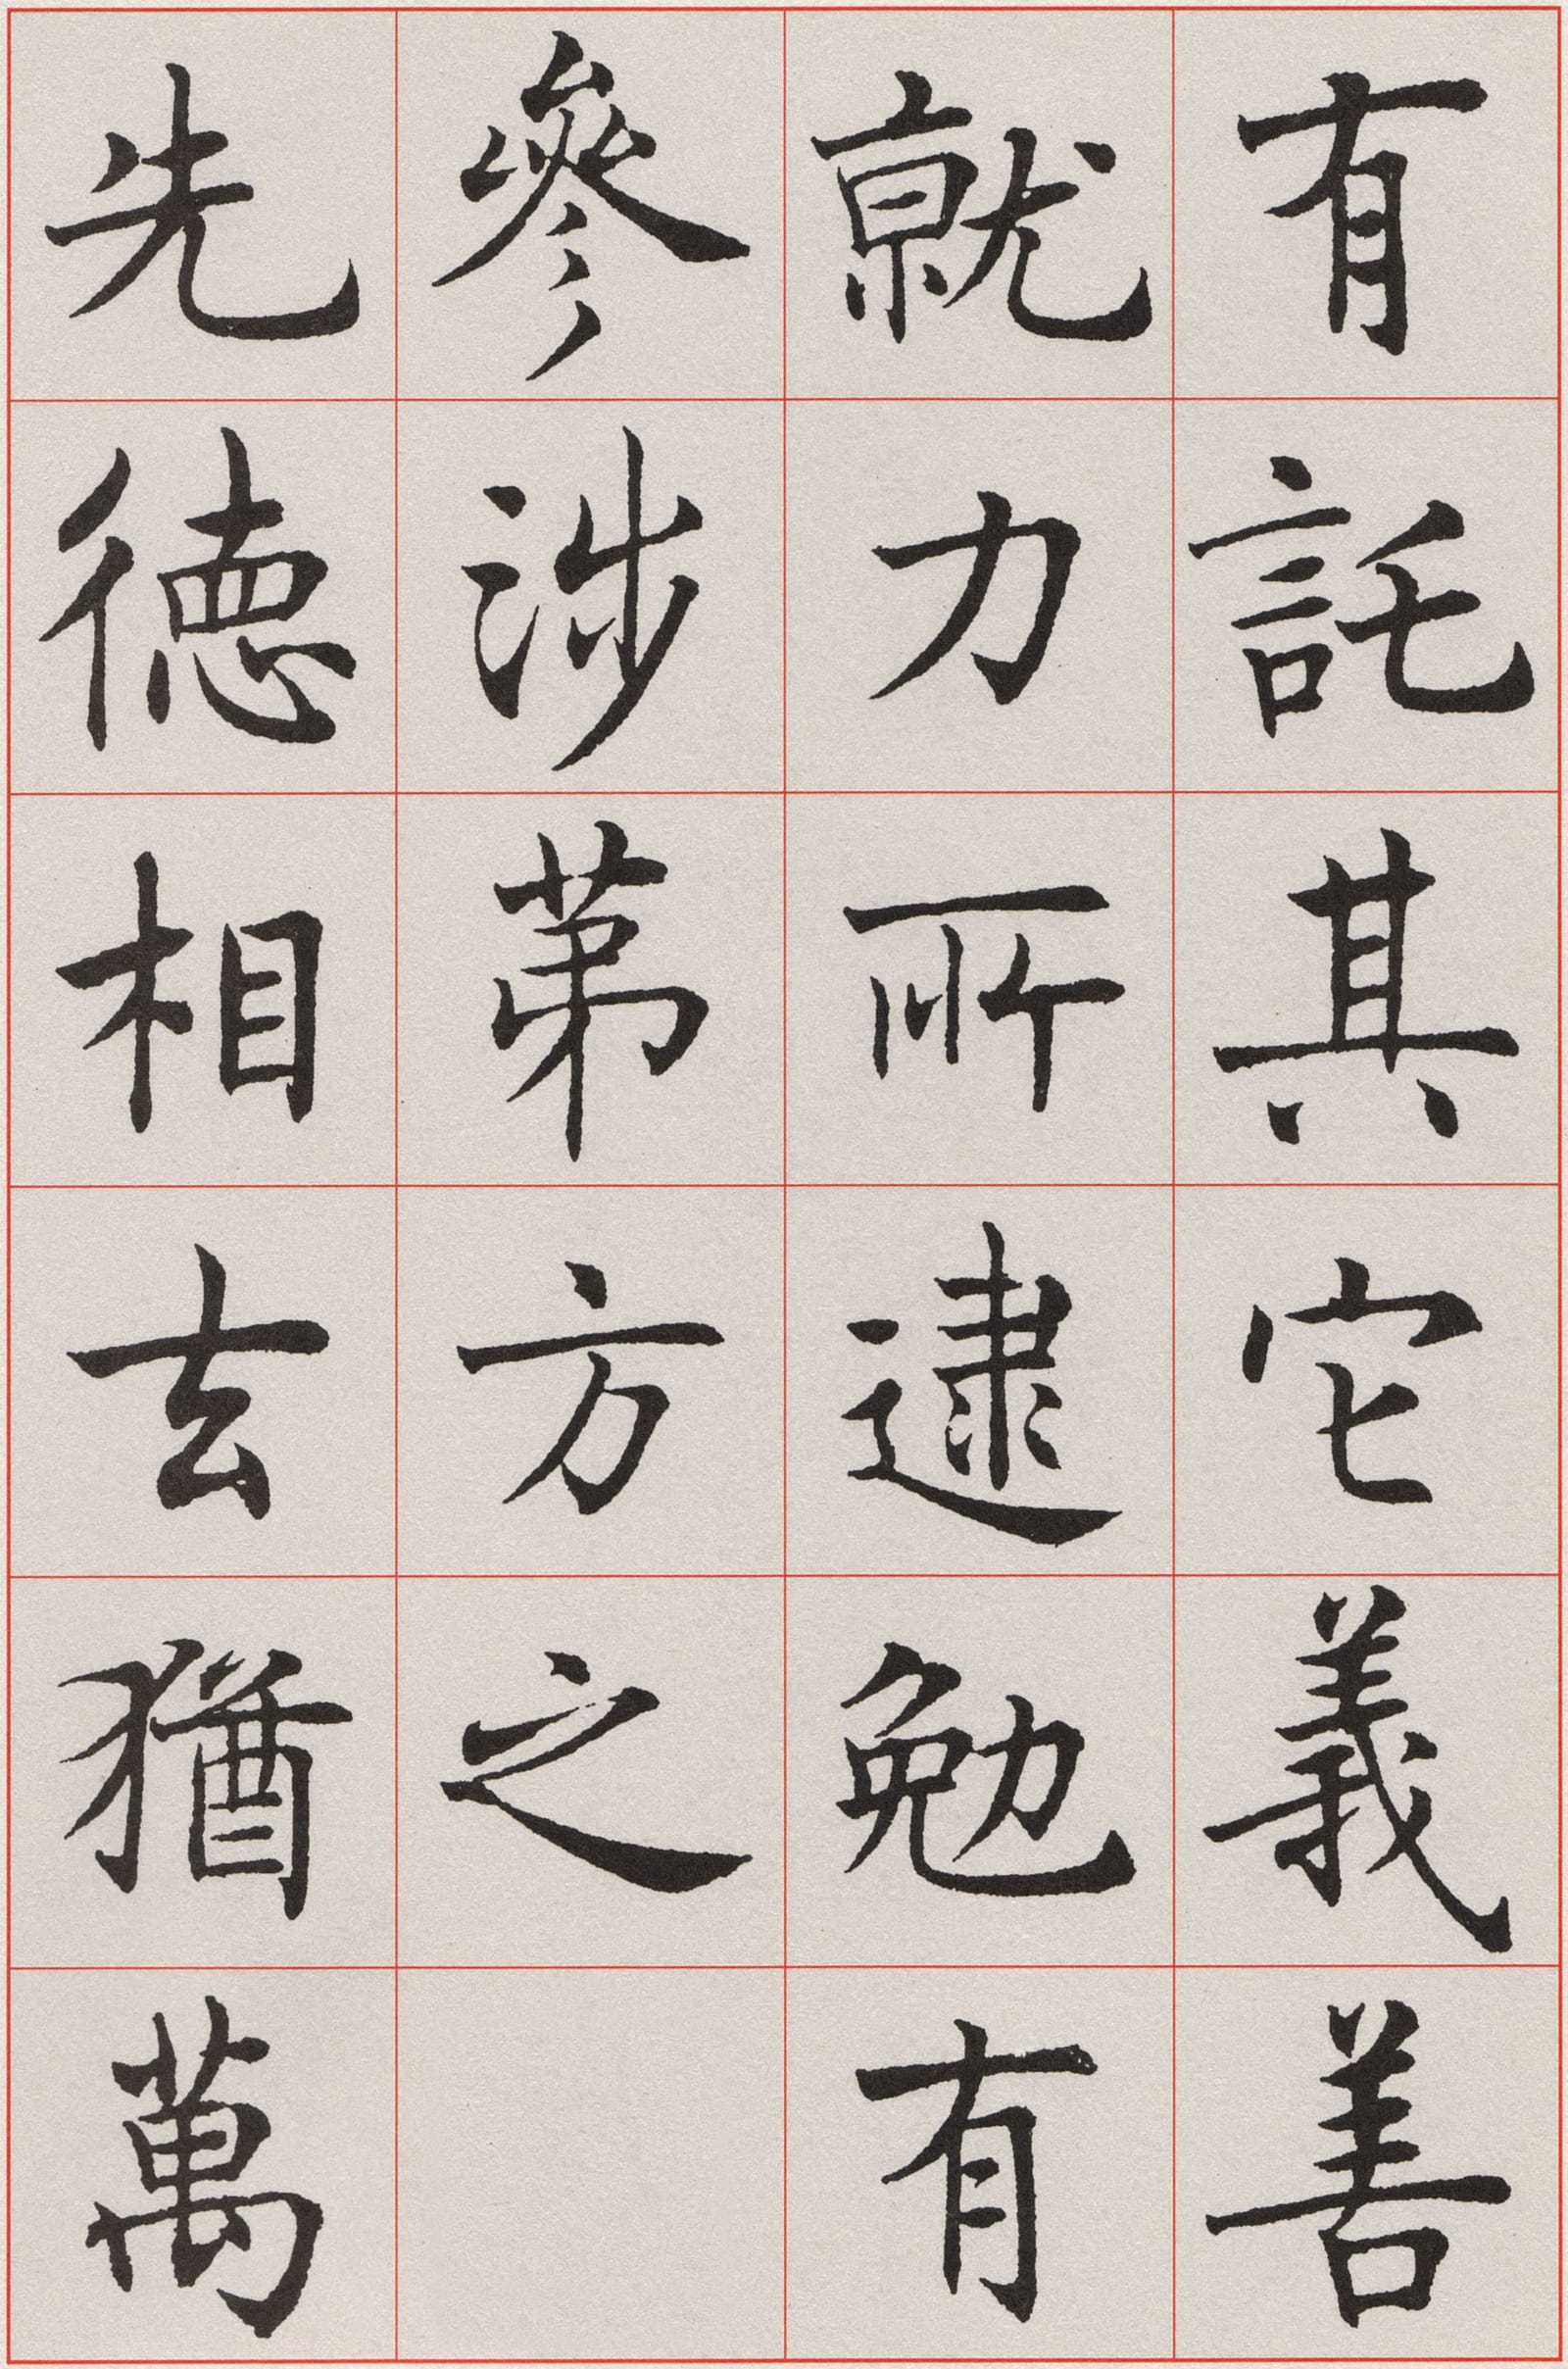 有託其它義善
就力所逮勉有
參涉苐方之
先徳相去猶萬